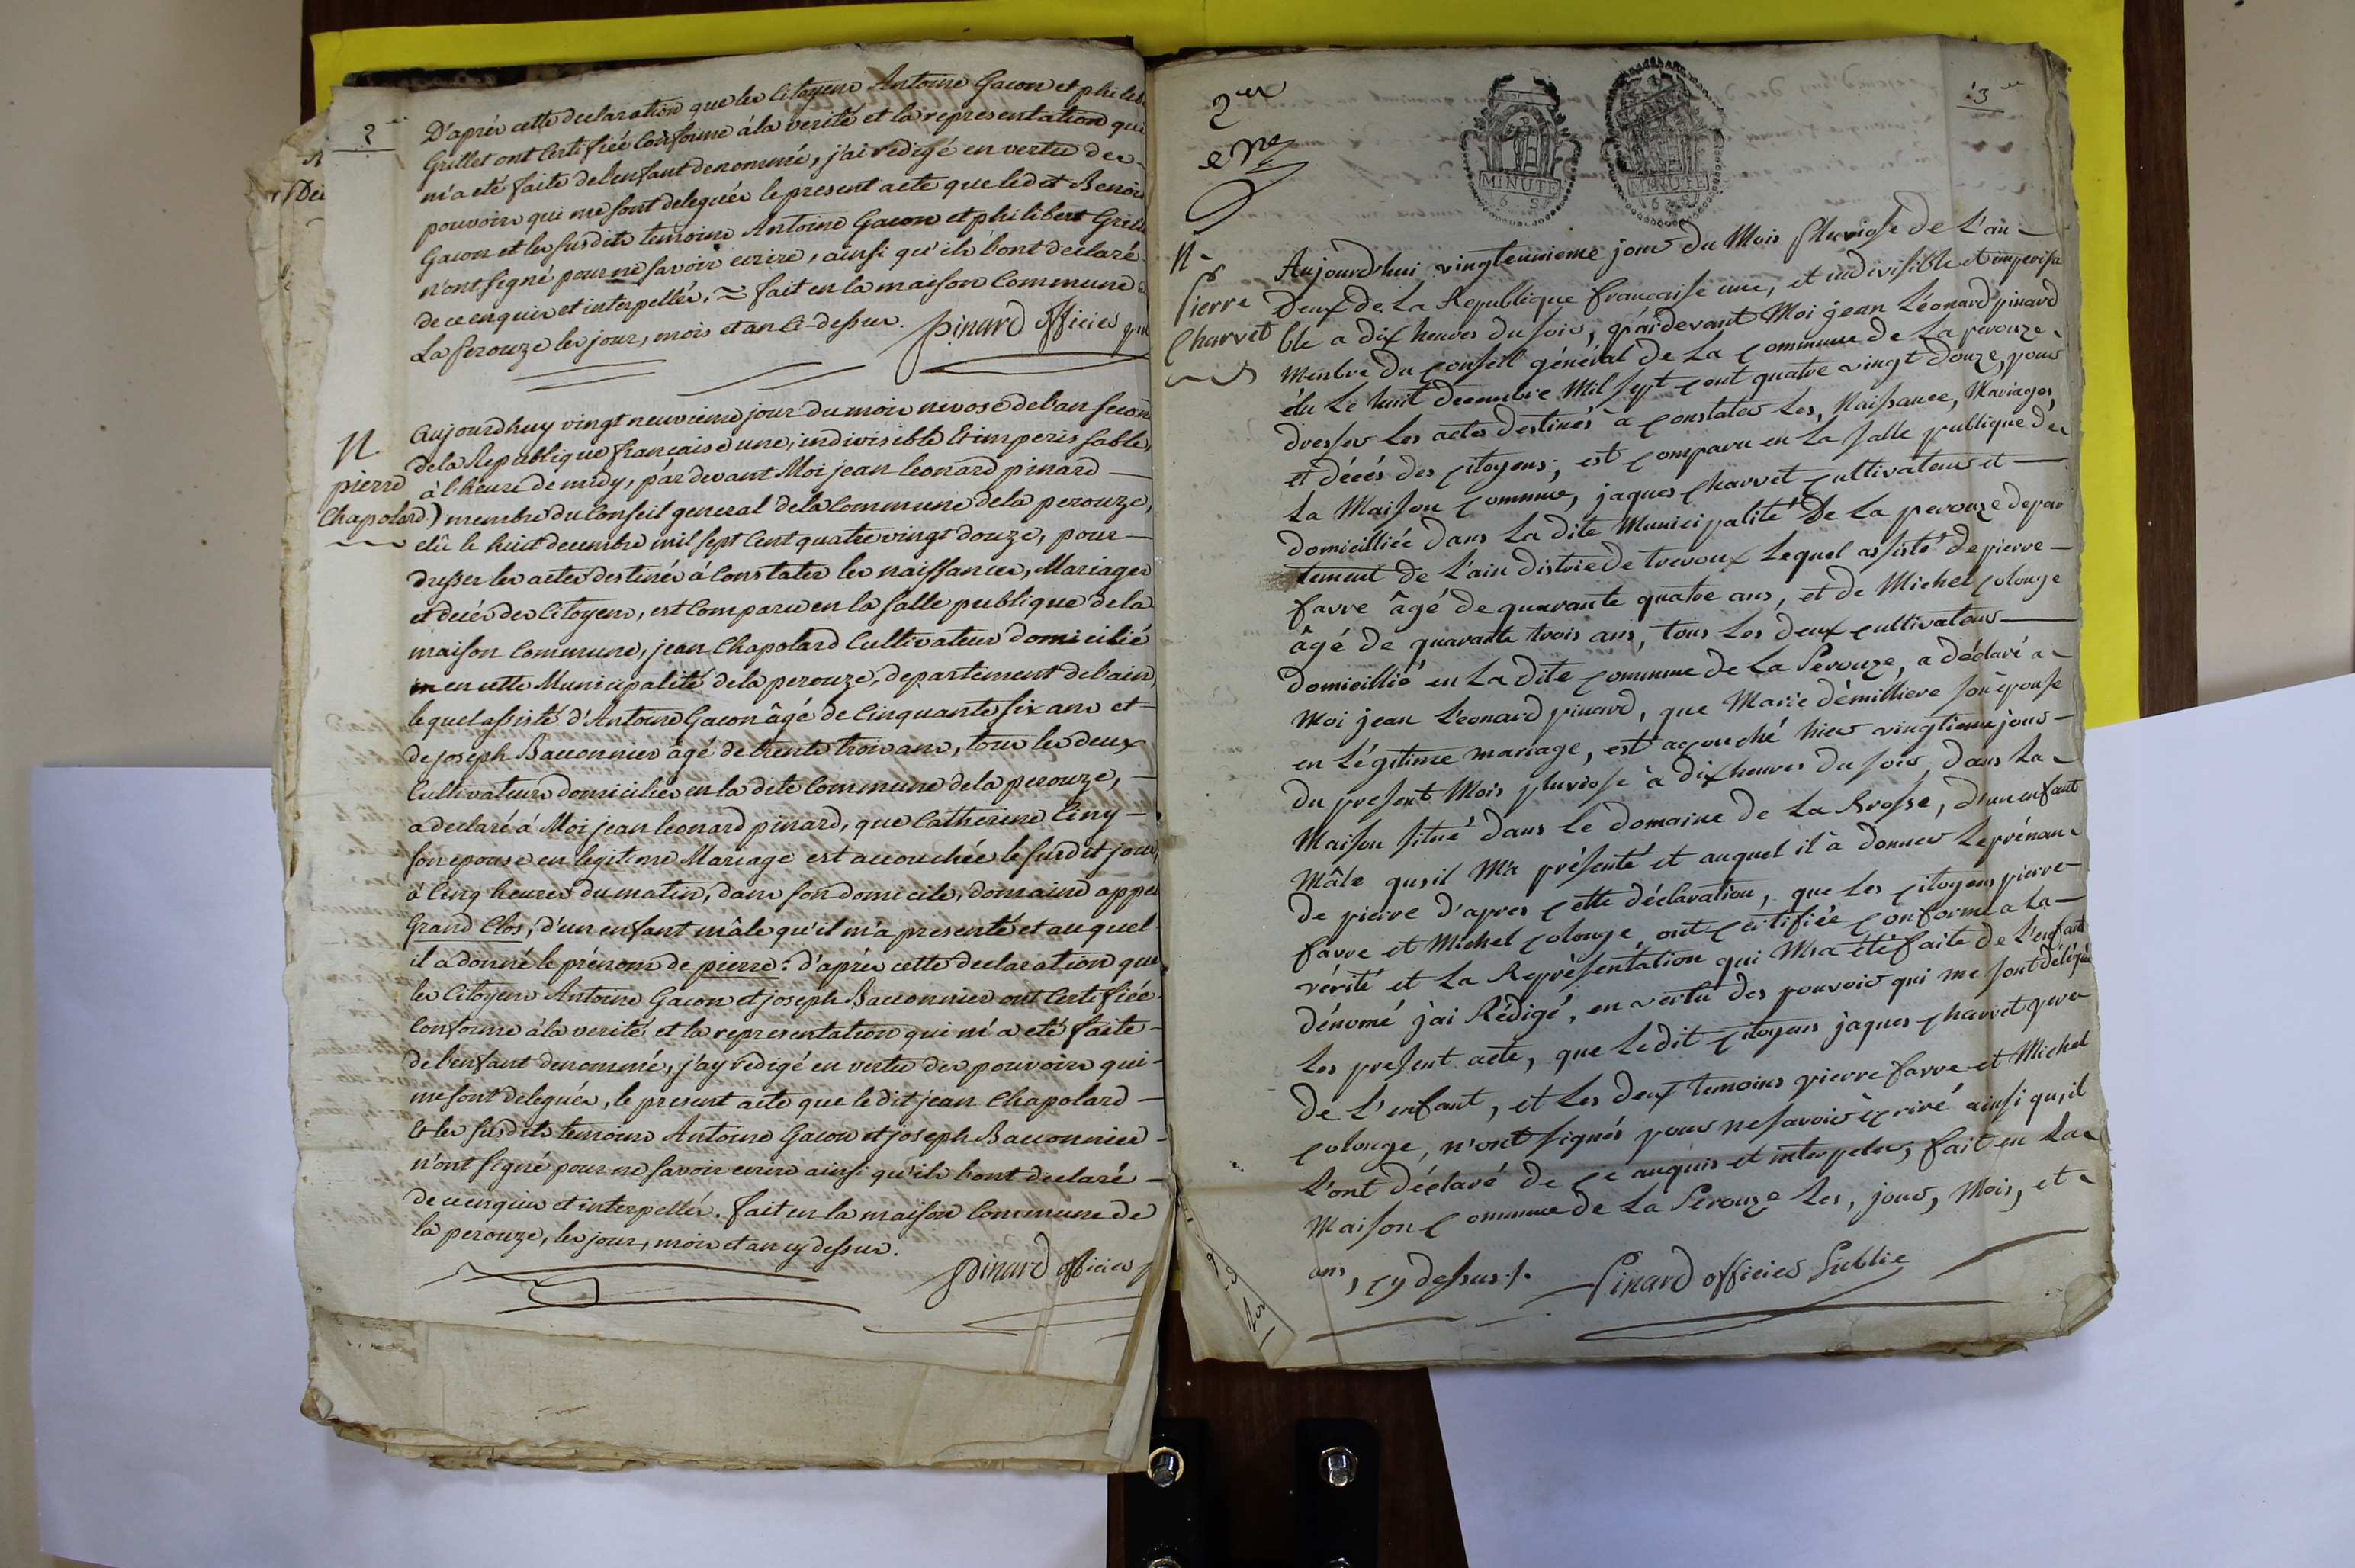 2
D'après cette declaration que les Citoyens Antoine Gacon et philib
Grillet ont Certifiée Conforme à la verité et la representation qui
m'a eté faite de l'enfant denommé, j'ai redigé en vertu des
pouvoirs qui me sont delegués le present acte que ledit Benoit
Gacon et les susdits temoins Antoine Gacon et philibert Grillet
n'ont signé pour ne savoir ecrire, ainsi qu'ils l'ont declaré
de ce enquis et interpellés. = fait en la maison Commune
La perouze les jour, mois et an Ci-dessus. pinard officier
N
pierre
Chapolard.)
Aujourdhuy vingt neuvieme jour du mois nivose de l'an second
de la Republique française une, indivisible & imperissable,
à l'heure de midy, pardevant Moi jean leonard pinard
membre du Conseil general de la Commune de la perouze,
elû le huit decembre mil sept Cent quatre vingt douze, pour
dresser les actes destinés à Constater les naissances, Mariages
et decès des Citoyens, est Comparu en la salle publique de la
maison Commune, jean Chapolard Cultivateur domicilié
en cette Municipalité de la perouze, departement de l'ain,
lequel assisté d'Antoine Gacon âgé de Cinquante six ans et
de joseph Bauonnier âgé de trente trois ans, tous les deux
Cultivateurs domiciliés en la dite Commune de la perouze,
a declaré à Moi jean leonard pinard, que Catherine Ceny
son epouse en legitime Mariage est accouchée le susdit jour
à Cinq heures du matin, dans son domicile, domaine appel
Grand Clos, d'un enfant mâle qu'il m'a presenté et auquel
il a donné le prénom de pierre: d'après cette declaration que
les Citoyens Antoine Gacon et joseph Bauonnier ont Certifiée
Conforme à la verité et la representation qui m'a eté faite
de l'enfant denommé, j'ay redigé en vertu des pouvoirs qui
me sont delegués, le present acte que le dit jean Chapolard
& les susdits temoins Antoine Gacon et joseph Bauonnier
n'ont signé pour ne savoir ecrire ainsi qu'ils l'ont declaré
de ce enquis et interpellés. fait en la maison Commune de
la perouze, les jour, mois et an cy dessus.
pinard officier
2
3
MINUTE
MINUTE
N
Pierre
Charvet
Aujourd'hui vingteunieme jour du Mois Pluviose de L'an
Deux de La Republique française une, et indivisible et imperissa
ble a dix heures du soir, pardevant Moi jean Léonard pinard
Membre du Conseil général de La Commune de La pérouze
élu Le huit decembre Mil Sept Cent quatre vingt douze, pour
dresser Les actes destinés à Constater Les, Naissance, Mariages,
et décés des Citoyens; est Comparu en La Salle publique de
La Maison Commune, jaques Charvet Cultivateur et
domicilliée dans La dite Municipalité De La perouze depar
tement de L'ain district de trevoux Lequel assisté de pierre
favre âgé de quarante quatre ans, et de Michel Colonge
âgé de quarante trois ans, tous Les deux Cultivateurs
domicillié en La dite Commune de La Perouze, a déclaré a
Moi jean Léonard pinard, que Marie démilliere son épouse
en Légitime mariage, est acouché hier vingtieme jour
du present Mois pluviose à dix heures du soir, dans La
Maison situé dans Le domaine de La Brosse, d'un enfant
Mâle qu'il M'a présenté et auquel il à donner Le prénom
de pierre d'apres Cette déclaration, que Les Citoyens pierre
favre et Michel Colonge, ont Certifiée Conforme a La
vérité et La Représentation qui M'a été faite de L'enfant
dénomé j'ai Rédigé, en vertu des pouvoir qui me sont délégué
Les present acte, que Ledit Citoyens jaques Charvet pere
de L'enfant, et Les deux temoins pierre favre et Michel
Colonge, n'ont signés pour ne savoir ècrire ainsi qu'il
L'ont déclaré de Ce anquis et interpeler, fait en La
Maison Commune de La Perouze Les, jour, Mois, et
ans, cy dessus./. Pinard officier Public